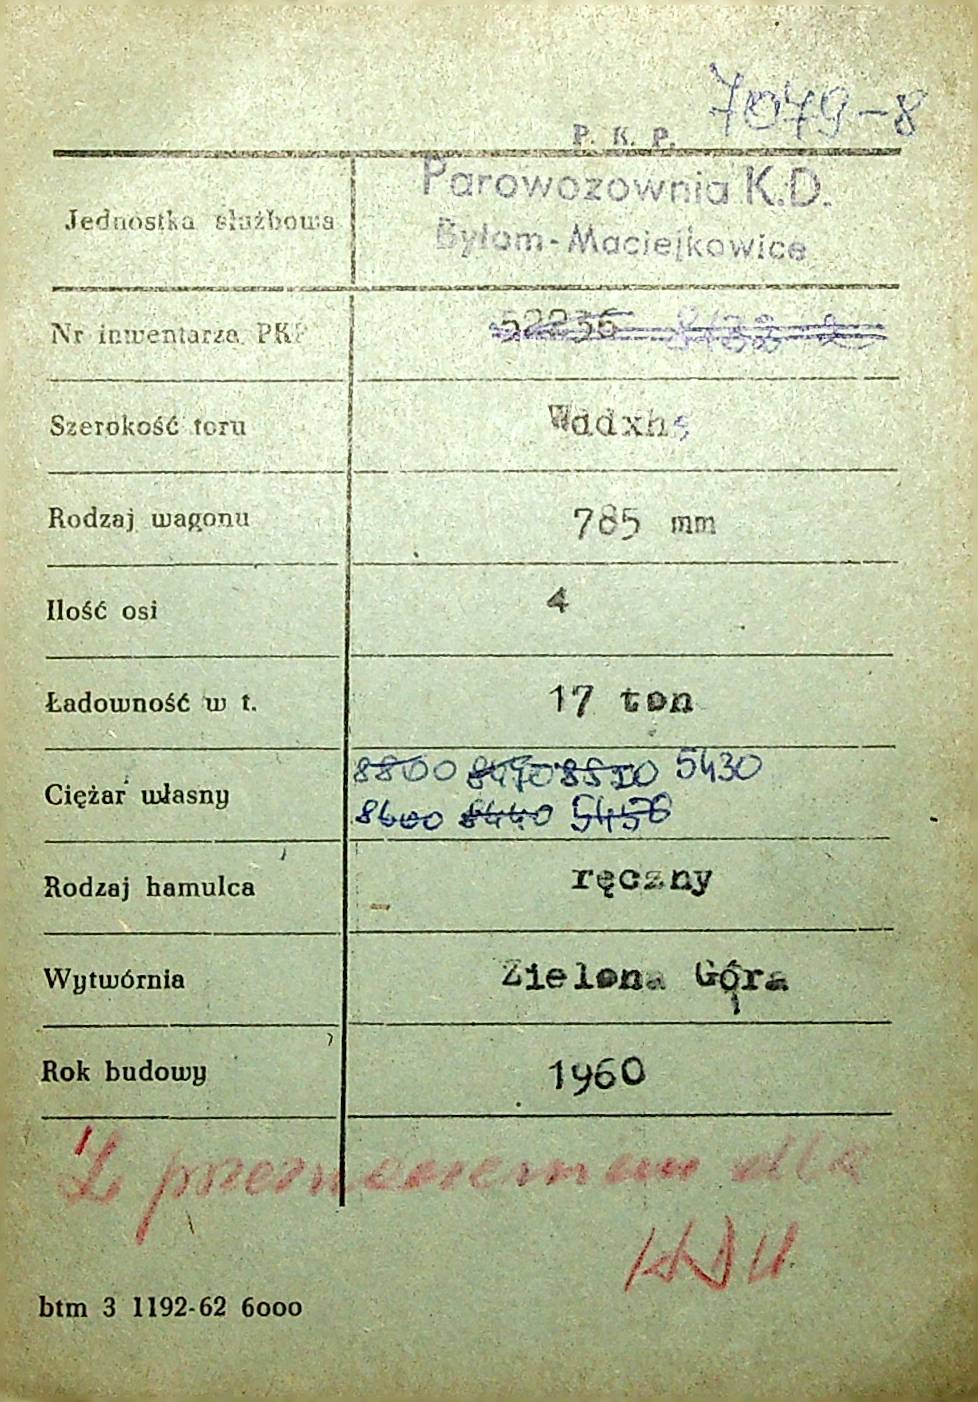 7079-8
P. K. P.
Jednostka służbowa Parowozownia K.D.
Bytom-Maciejkowice
Nr inwentarza PKP 52236
Szerokość toru Wddxhs
Rodzaj wagonu 785 mm
Ilość osi 4
Ładowność w t. 17 ton
Ciężar własny 8800 8470 8550 5430
8600 8440 5450
Rodzaj hamulca ręczny
Wytwórnia Zielona Góra
Rok budowy 1960
Z przeznaczeniem dla
btm 3 1192-62 6000